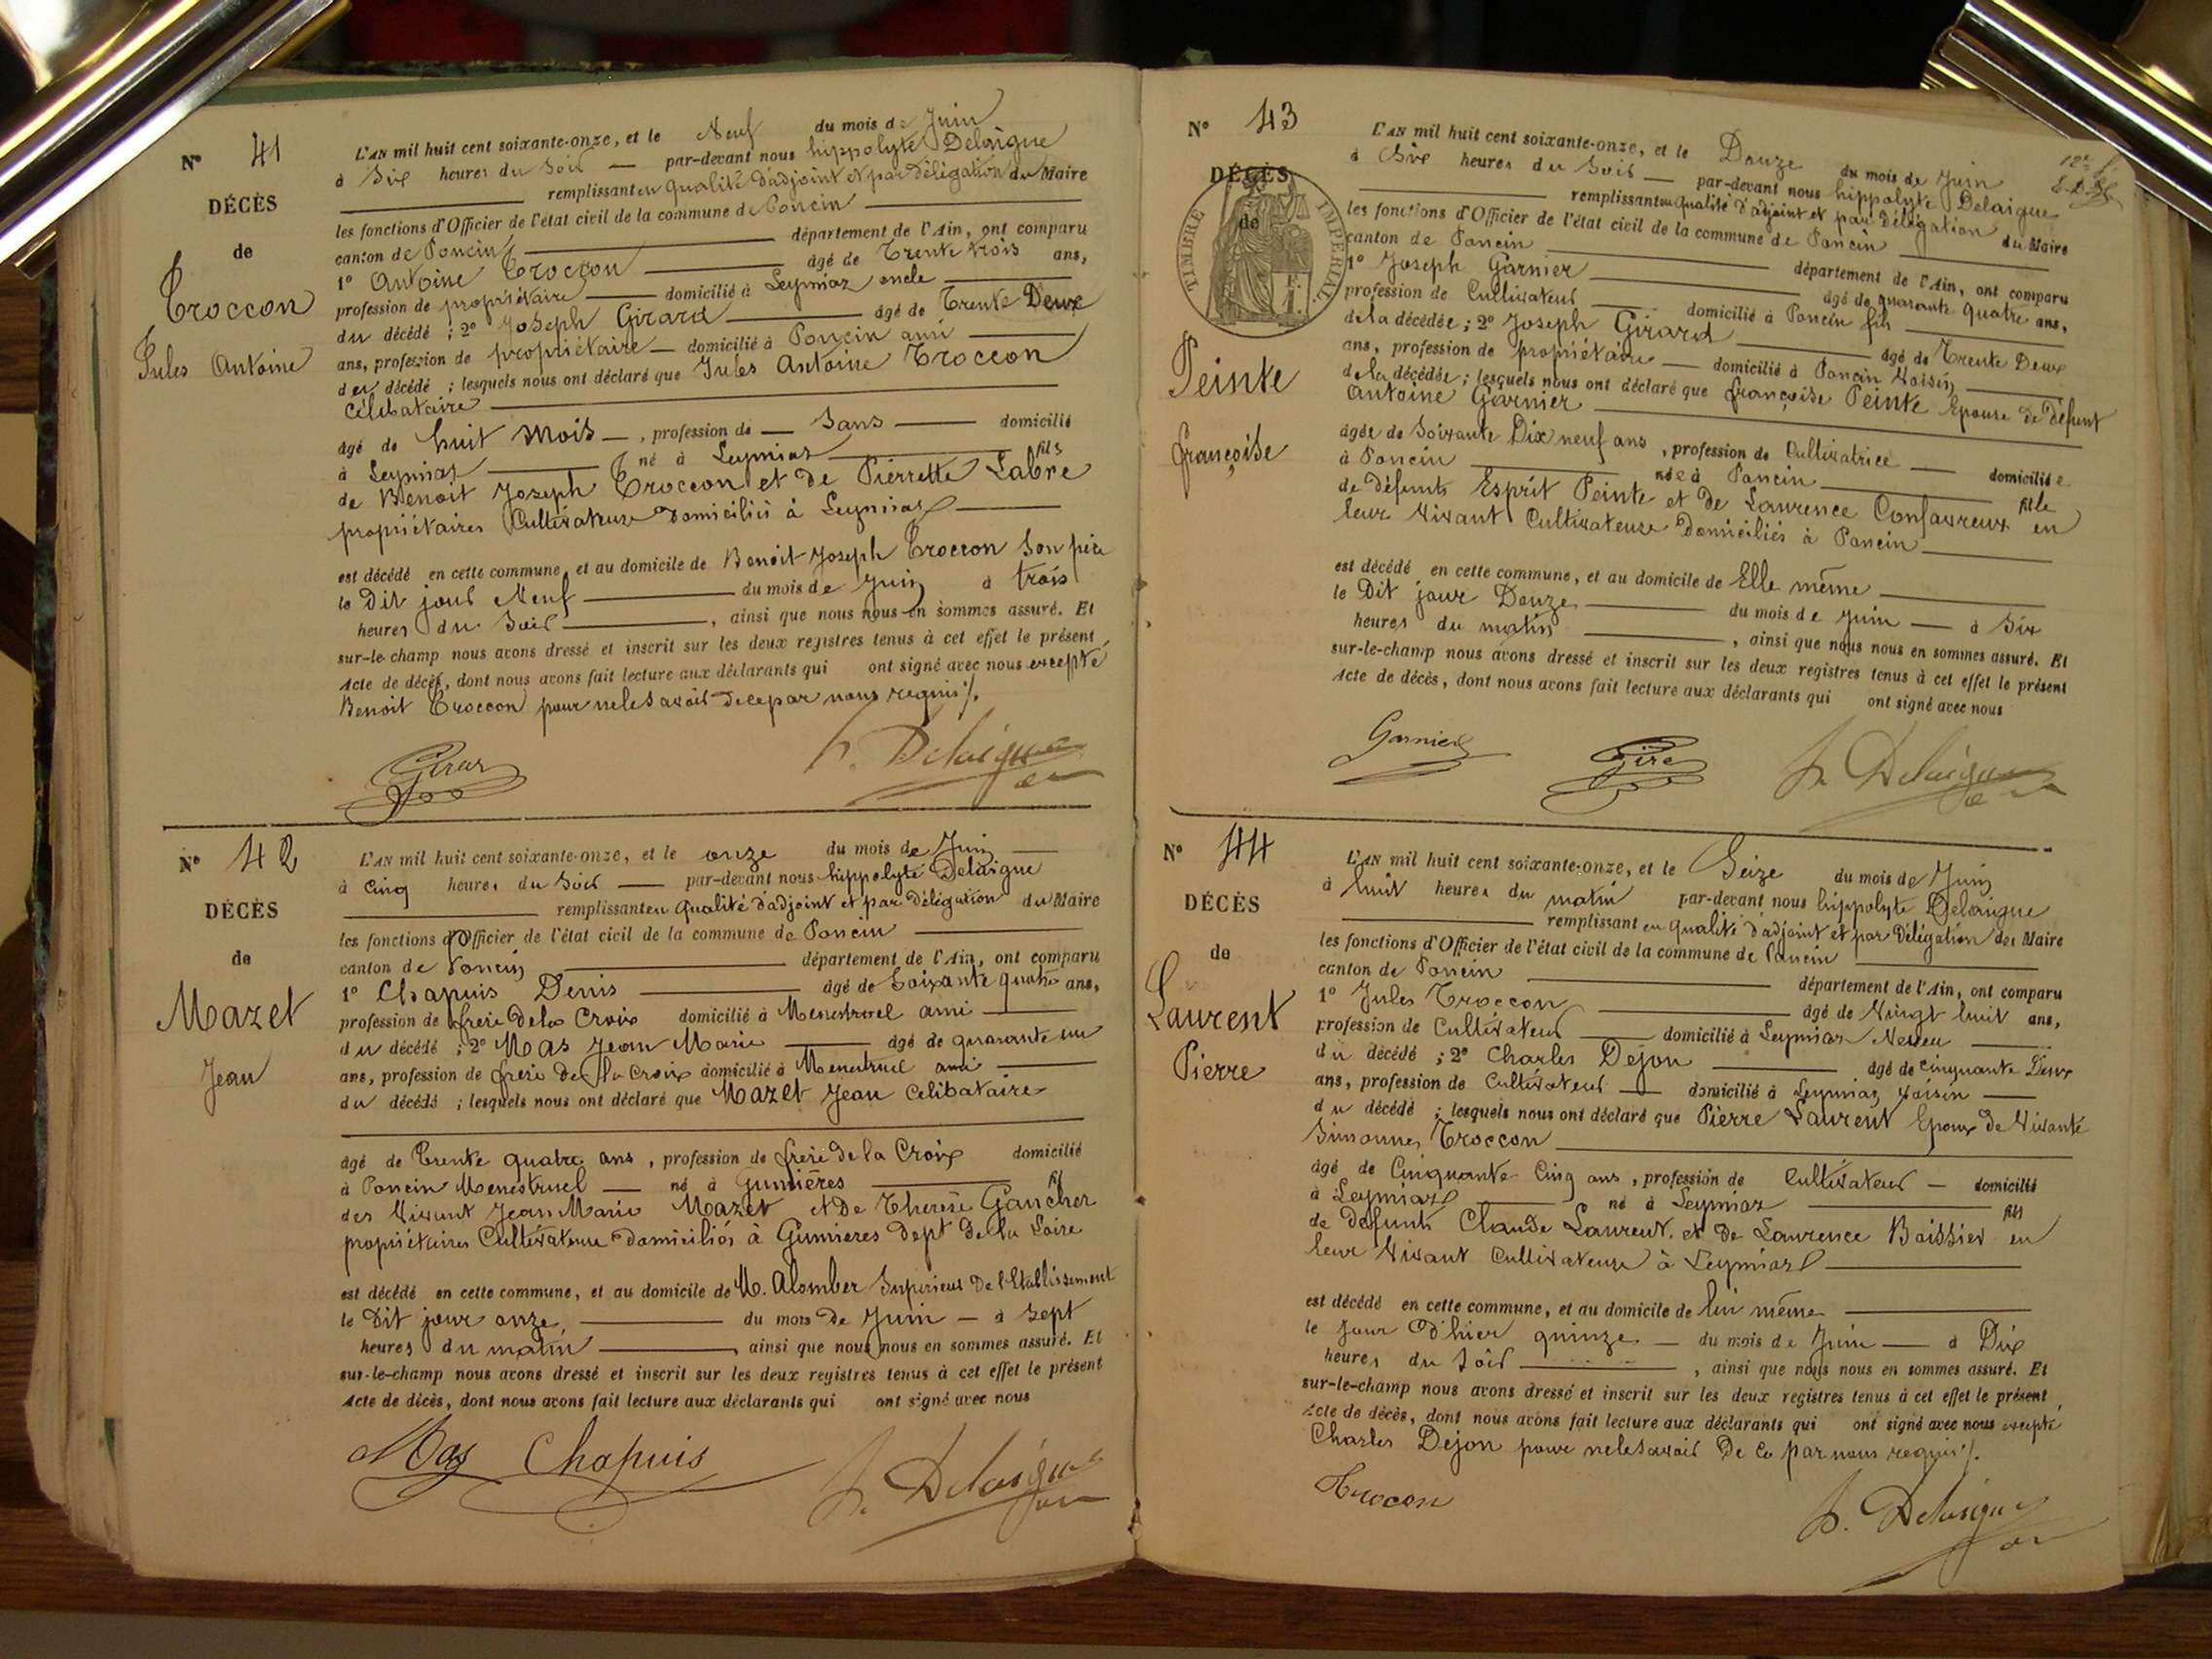 N° 41
DÉCÈS
de
Troccon
Jules Antoine
L'AN mil huit cent soixante-onze, et le Neuf du mois de Juin
à Six heures du Soir par-devant nous hippolyte Delaigue
remplissant en qualité d'adjoint et par délégation du Maire
les fonctions d'Officier de l'état civil de la commune de Poncin
canton de Poncin département de l'Ain, ont comparu
1° Antoine Troccon âgé de Trente trois ans,
profession de propriétaire domicilié à Leymiaz oncle
du décédé ; 2° Joseph Girard âgé de Trente Deux
ans, profession de propriétaire domicilié à Poncin ami
du décédé ; lesquels nous ont déclaré que Jules Antoine Troccon
Célibataire
âgé de huit mois, profession de Sans domicilié
à Leymiaz né à Leymiaz fils
de Benoit Joseph Troccon et de Pierrette Labre
propriétaires Cultivateurs domiciliés à Leymiaz
est décédé en cette commune, et au domicile de Benoit Joseph Troccon Son père
le Dit jour Neuf du mois de Juin à trois
heures du Soir, ainsi que nous nous en sommes assuré. Et
sur-le-champ nous avons dressé et inscrit sur les deux registres tenus à cet effet le présent
Acte de décès, dont nous avons fait lecture aux déclarants qui ont signé avec nous excepté
Benoit Troccon pour ne le Savoir de ce par nous requis ⁒.
Girar
h. Delaigue
N° 42
DÉCÈS
de
Mazet
Jean
L'AN mil huit cent soixante-onze, et le onze du mois de Juin
à Cinq heures du Soir par-devant nous hippolyte Delaigue
remplissant en qualité d'adjoint et par Délégation du Maire
les fonctions d'Officier de l'état civil de la commune de Poncin
canton de Poncin département de l'Ain, ont comparu
1° Chapuis Denis âgé de Soixante quatre ans,
profession de frère de la Croix domicilié à Menestruel ami
du décédé ; 2° Mas Jean Marie âgé de quarante un
ans, profession de frère de la Croix domicilié à Menestruel ami
du décédé ; lesquels nous ont déclaré que Mazet Jean Celibataire
âgé de Trente quatre ans, profession de frère de la Croix domicilié
à Poncin Menestruel né à Gumières fil
des Vivant Jean Marie Mazet et De Therèse Gancher
propriétaires Cultivateurs domiciliés à Gumieres dept de la Loire
est décédé en cette commune, et au domicile de M. Alomber Supérieur De l'Etablissement
le Dit jour onze du mois De Juin à Sept
heures du matin, ainsi que nous nous en sommes assuré. Et
sur-le-champ nous avons dressé et inscrit sur les deux registres tenus à cet effet le présent
Acte de décès, dont nous avons fait lecture aux déclarants qui ont signé avec nous
Mas Chapuis
h. Delaigue
N° 43
DÉCÈS
de
TIMBRE IMPERIAL
Peinte
françoise
L'AN mil huit cent soixante-onze, et le Douze du mois de Juin
à Six heures du Soir par-devant nous hippolyte Delaigue
remplissant en qualité d'adjoint et par délégation du Maire
les fonctions d'Officier de l'état civil de la commune de Poncin
canton de Poncin département de l'Ain, ont comparu
1° Joseph Garnier âgé de quarante quatre ans,
profession de Cultivateur domicilié à Poncin fils
de la décédée ; 2° Joseph Girard âgé de Trente Deux
ans, profession de propriétaire domicilié à Poncin Voisin
de la décédée ; lesquels nous ont déclaré que françoise Peinte Epouse De défunt
Antoine Garnier
âgée de Soixante Dix neuf ans, profession de Cultivatrice domiciliée
à Poncin née à Poncin fille
de défunts Esprit Peinte et de Laurence Confavreux en
leur Vivant Cultivateurs Domiciliés à Poncin
est décédé en cette commune, et au domicile de Elle même
le Dit jour Douze du mois de Juin à Six
heures du matin, ainsi que nous nous en sommes assuré. Et
sur-le-champ nous avons dressé et inscrit sur les deux registres tenus à cet effet le présent
Acte de décès, dont nous avons fait lecture aux déclarants qui ont signé avec nous
Garnier
Girar
h. Delaigue
N° 44
DÉCÈS
de
Laurent
Pierre
L'AN mil huit cent soixante-onze, et le Seize du mois de Juin
à huit heures du matin par-devant nous hippolyte Delaigue
remplissant en qualité d'adjoint et par Délégation du Maire
les fonctions d'Officier de l'état civil de la commune de Poncin
canton de Poncin département de l'Ain, ont comparu
1° Jules Troccon âgé de Vingt huit ans,
profession de Cultivateur domicilié à Leymiaz Neveu
du décédé ; 2° Charles Dejou âgé de Cinquante Deux
ans, profession de Cultivateur domicilié à Leymiaz Voisin
du décédé ; lesquels nous ont déclaré que Pierre Laurent Epoux De Vivante
Simonne Troccon
âgé de Cinquante Cinq ans, profession de Cultivateur domicilié
à Leymiaz né à Leymiaz fils
de défunts Claude Laurent et de Laurence Boissier en
leur Vivant Cultivateurs à Leymiaz
est décédé en cette commune, et au domicile de lui même
le jour d'hier quinze du mois de Juin à Dix
heures du Soir, ainsi que nous nous en sommes assuré. Et
sur-le-champ nous avons dressé et inscrit sur les deux registres tenus à cet effet le présent
Acte de décès, dont nous avons fait lecture aux déclarants qui ont signé avec nous excepté
Charles Dejou pour ne le Savoir De ce par nous requis ⁒.
Trocon
h. Delaigue